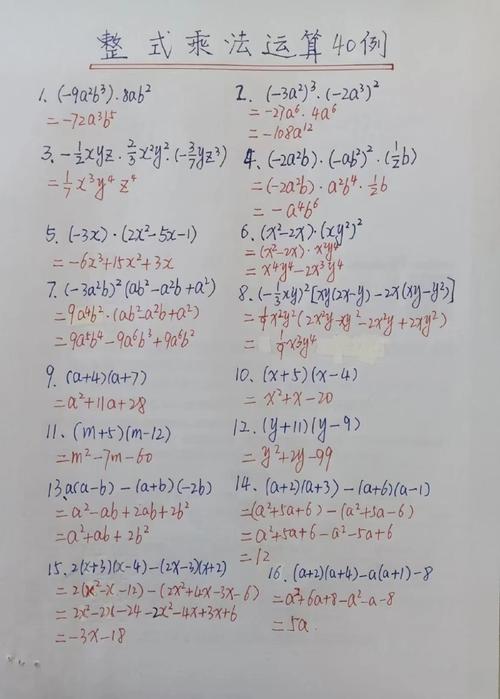 整式乘法运算40例
1. (-9a²b³)·8ab²
= -72a³b⁵
2. (-3a²)³·(-2a³)²
= -27a⁶·4a⁶
= -108a¹²
3. -½xyz·⅔x²y²·(-3/7yz³)
= 1/7x³y⁴z⁴
4. (-2a²b)·(-ab²)²·(½b)
= (-2a²b)·a²b⁴·½b
= -a⁴b⁶
5. (-3x)·(2x²-5x-1)
= -6x³+15x²+3x
6. (x²-2x)·(xy²)²
= (x²-2x)·x²y⁴
= x⁴y⁴-2x³y⁴
7. (-3a²b)²(ab²-a²b+a²)
= 9a⁴b²·(ab²-a²b+a²)
= 9a⁵b⁴-9a⁶b³+9a⁶b²
8. (-⅓xy)²[xy(2x-y)-2x(xy-y²)]
= 1/9x²y²(2x²y-xy²-2x²y+2xy²)
= 1/9x³y⁴
9. (a+4)(a+7)
= a²+11a+28
10. (x+5)(x-4)
= x²+x-20
11. (m+5)(m-12)
= m²-7m-60
12. (y+11)(y-9)
= y²+2y-99
13. a(a-b)-(a+b)(-2b)
= a²-ab+2ab+2b²
= a²+ab+2b²
14. (a+2)(a+3)-(a+6)(a-1)
= (a²+5a+6)-(a²+5a-6)
= a²+5a+6-a²-5a+6
= 12
15. 2(x+3)(x-4)-(2x-3)(x+2)
= 2(x²-x-12)-(2x²+4x-3x-6)
= 2x²-2x-24-2x²-4x+3x+6
= -3x-18
16. (a+2)(a+4)-a(a+1)-8
= a²+6a+8-a²-a-8
= 5a.